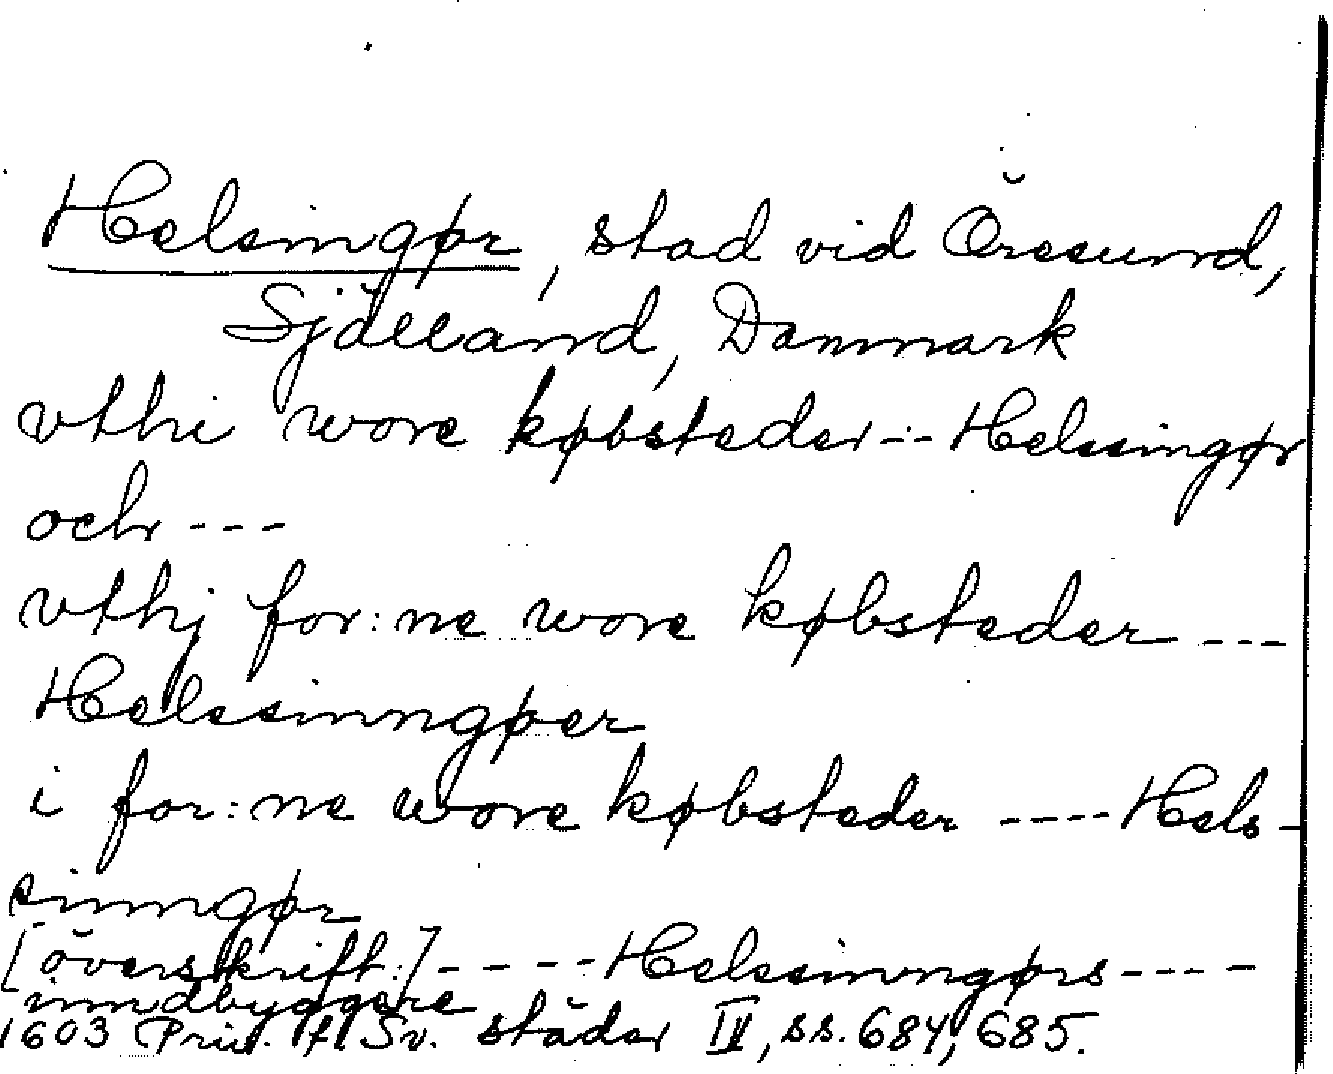 Helsingør, stad vid Öresund,
Själland, Danmark
vthi wore købsteder --- Helssingør
och ---
vthj for:ne wore købsteder ---
Helssinngøer
i for:ne wore købsteder ---- Hels-
sinngør
[överskrift:] ---- Helssinngørs ----
inndbyggere
1603 Priv. f. Sv. städer IV, ss. 684, 685.